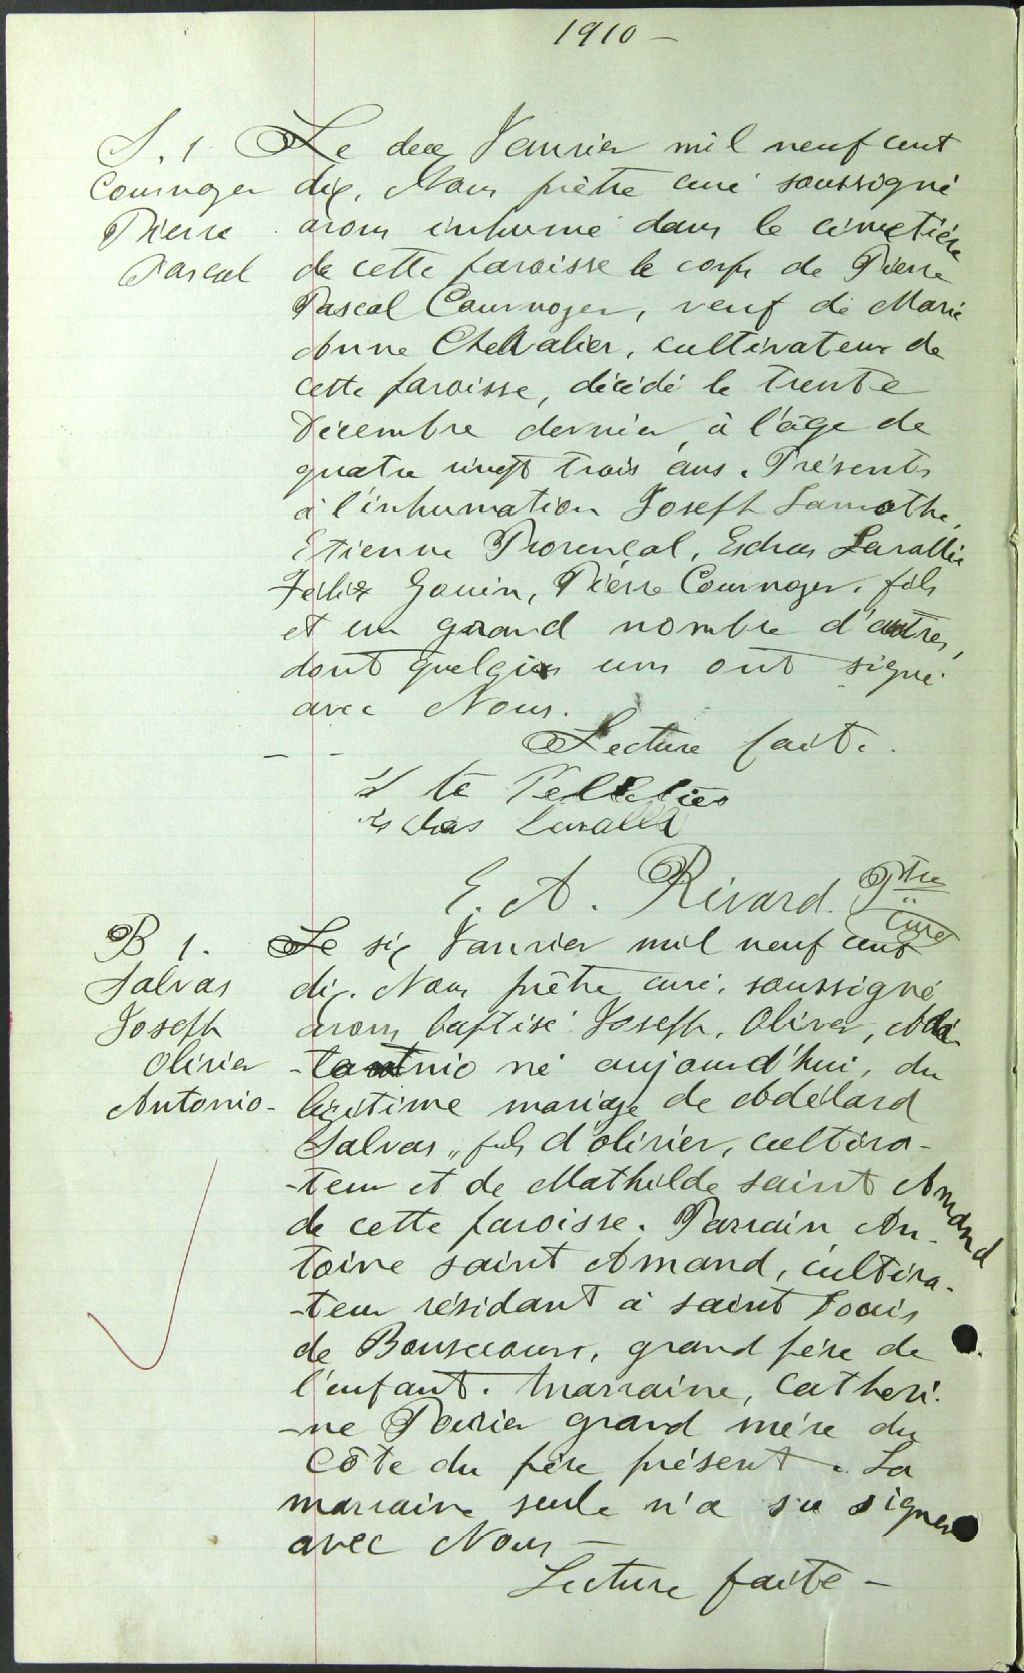 1910 -
S. 1
Cournoyer
Pierre
Pascal
Le deux Janvier mil neuf cent
dix, Nous prêtre curé soussigné
avons inhumé dans le cimetière
de cette paroisse le corps de Pierre
Pascal Cournoyer, veuf de Marie
Anne Chevalier, cultivateur de
cette paroisse, décédé le trente
Décembre dernier, à l'âge de
quatre vingt trois ans. Présents
à l'inhumation Joseph Lamothe,
Etienne Provençal, Eschas Lavallée
Félix Gouin, Pierre Cournoyer, fils
et un grand nombre d'autres,
dont quelques uns ont signé
avec Nous.
Lecture faite.
te Pelletier
Eschas Lavallé
E. A. Rivard. Ptre
curé
B 1.
Salvas
Joseph
Olivier
Antonio-
Le six Janvier mil neuf cent
dix. Nous prêtre curé, soussigné
avons baptisé Joseph, Oliver,
né aujourd'hui, du
légitime mariage de Adélard
Salvas, fils d'olivier, cultiva-
-teur et de Mathilde saint Amand
de cette paroisse. Parrain An-
toine saint Amand, cultiva-
-teur résidant à saint Louis
de Bonsecours, grand père de
l'enfant. Marraine, Catheri-
-ne Poirier grand mère du
Côté du père présent. La
marraine seule n'a su signer
avec Nous -
Lecture faite -